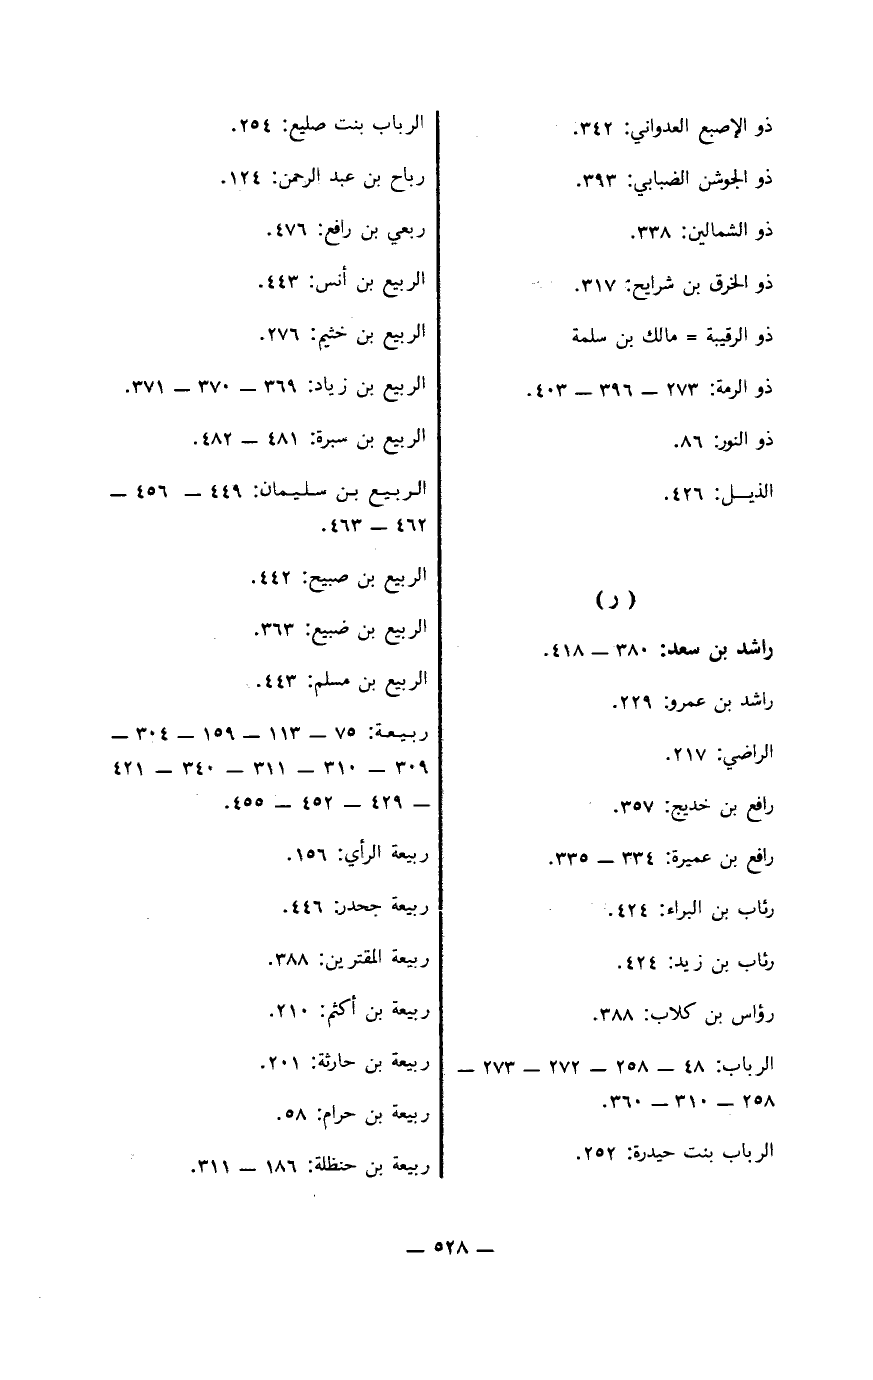 ذو الإصبع العدواني: ٣٤٢.
ذو الجوشن الضبابي: ٣٩٣.
ذو الشمالين: ٣٣٨.
ذو الخرق بن شرايح: ٣١٧.
ذو الرقيبة = مالك بن سلمة
ذو الرمة: ٢٧٣ — ٣٩٦ — ٤٠٣.
ذو النور: ٨٦.
الذيـــل: ٤٢٦.
( ر )
راشد بن سعد: ٣٨٠ — ٤١٨.
راشد بن عمرو: ٢٢٩.
الراضي: ٢١٧.
رافع بن خديج: ٣٥٧.
رافع بن عميرة: ٣٣٤ — ٣٣٥.
رئاب بن البراء: ٤٢٤.
رئاب بن زيد: ٤٢٤.
رؤاس بن كلاب: ٣٨٨.
الرباب: ٤٨ — ٢٥٨ — ٢٧٢ — ٢٧٣ —
٢٥٨ — ٣١٠ — ٣٦٠.
الرباب بنت حيدرة: ٢٥٢.
الرباب بنت صليع: ٢٥٤.
رباح بن عبد الرحمن: ١٢٤.
ربعي بن رافع: ٤٧٦.
الربيع بن أنس: ٤٤٣.
الربيع بن خثيم: ٢٧٦.
الربيع بن زياد: ٣٦٩ — ٣٧٠ — ٣٧١.
الربيع بن سبرة: ٤٨١ — ٤٨٢.
الربيع بن سليمان: ٤٤٩ — ٤٥٦ —
٤٦٢ — ٤٦٣.
الربيع بن صبيح: ٤٤٢.
الربيع بن ضبيع: ٣٦٣.
الربيع بن مسلم: ٤٤٣.
ربيعة: ٧٥ — ١١٣ — ١٥٩ — ٣٠٤ —
٣٠٩ — ٣١٠ — ٣١١ — ٣٤٠ — ٤٢١
— ٤٢٩ — ٤٥٢ — ٤٥٥.
ربيعة الرأي: ١٥٦.
ربيعة جحدر: ٤٤٦.
ربيعة المقترين: ٣٨٨.
ربيعة بن أكثم: ٢١٠.
ربيعة بن حارثة: ٢٠١.
ربيعة بن حرام: ٥٨.
ربيعة بن حنظلة: ١٨٦ — ٣١١.
— ٥٢٨ —